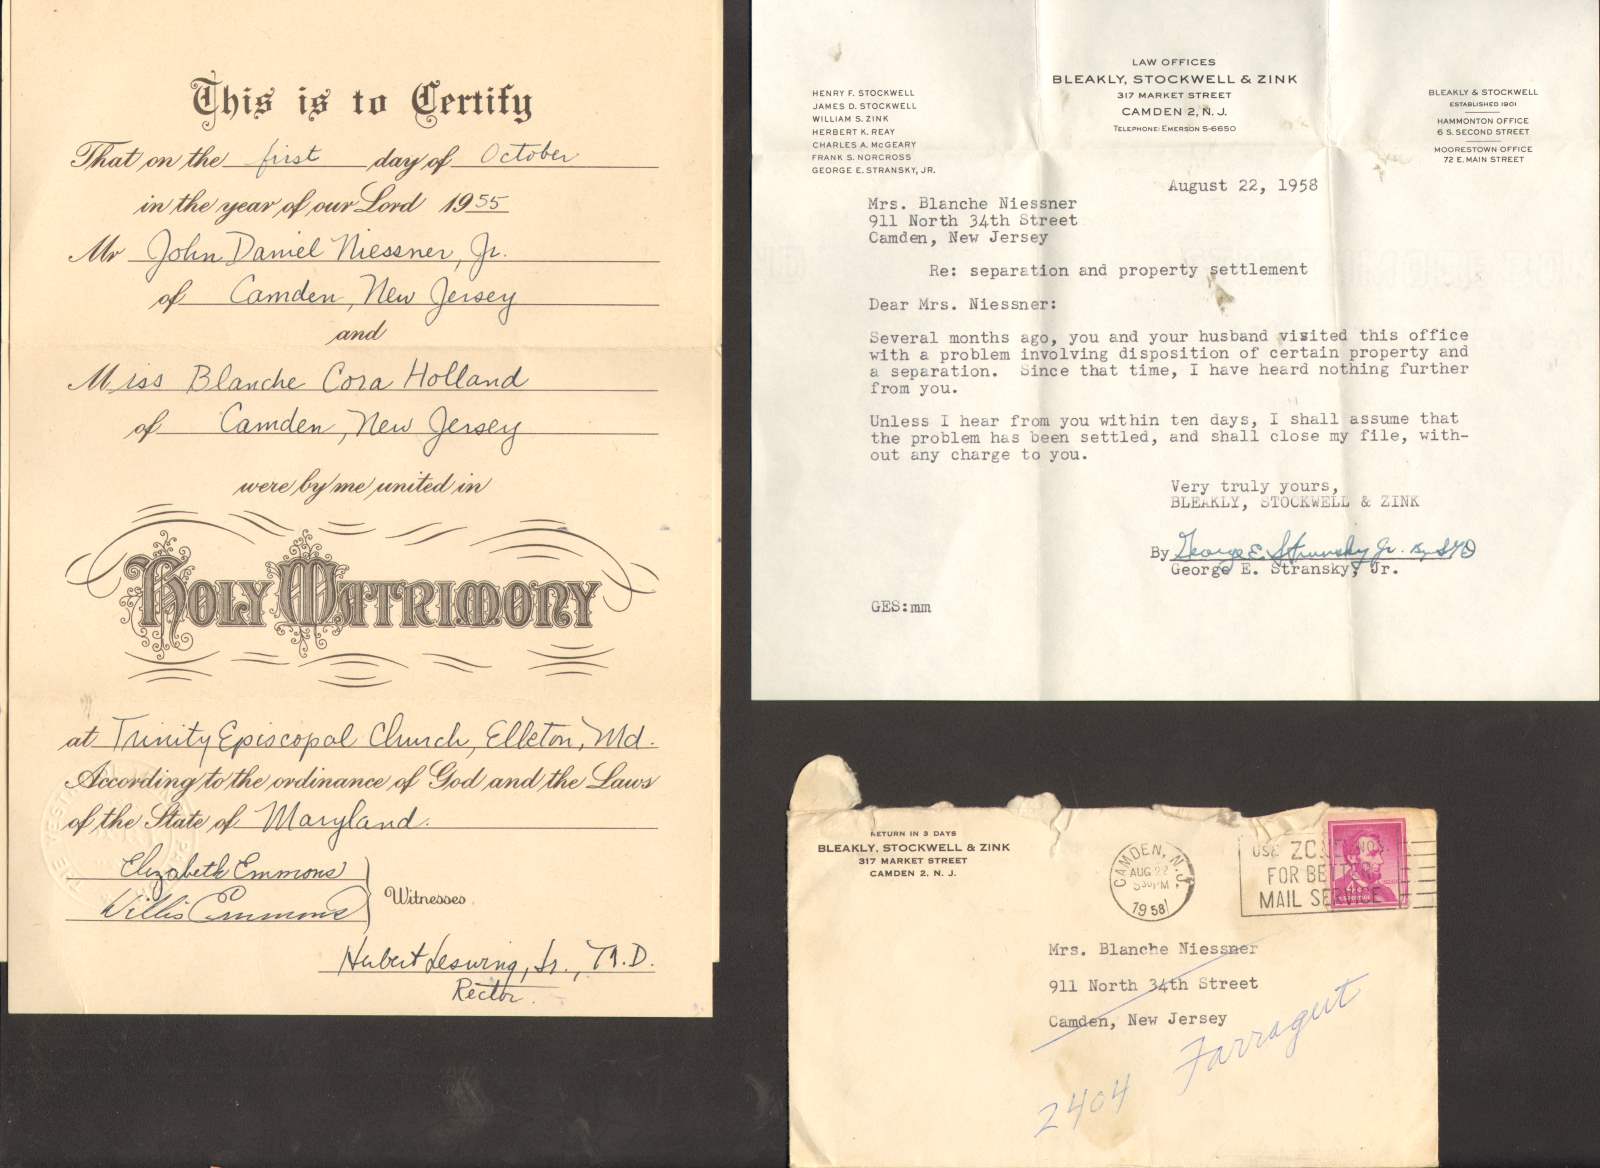 This is to Certify
That on the first day of October
in the year of our Lord 1955
Mr John Daniel Niessner, Jr.
of Camden, New Jersey
and
Miss Blanche Cora Holland
of Camden, New Jersey
were by me united in
HOLY MATRIMONY
at Trinity Episcopal Church, Elkton, Md.
According to the ordinance of God and the Laws
of the State of Maryland.
Elizabeth Emmons
Willis Emmons
Witnesses
Herbert Leswing, Jr., Th.D.
Rector.
LAW OFFICES
BLEAKLY, STOCKWELL & ZINK
317 MARKET STREET
CAMDEN 2, N. J.
TELEPHONE: EMERSON 5-6650
HENRY F. STOCKWELL
JAMES D. STOCKWELL
WILLIAM S. ZINK
HERBERT K. REAY
CHARLES A. McGEARY
FRANK S. NORCROSS
GEORGE E. STRANSKY, JR.
BLEAKLY & STOCKWELL
ESTABLISHED 1901
HAMMONTON OFFICE
6 S. SECOND STREET
MOORESTOWN OFFICE
72 E. MAIN STREET
August 22, 1958
Mrs. Blanche Niessner
911 North 34th Street
Camden, New Jersey
Re: separation and property settlement
Dear Mrs. Niessner:
Several months ago, you and your husband visited this office
with a problem involving disposition of certain property and
a separation. Since that time, I have heard nothing further
from you.
Unless I hear from you within ten days, I shall assume that
the problem has been settled, and shall close my file, with-
out any charge to you.
Very truly yours,
BLEAKLY, STOCKWELL & ZINK
By George E. Stransky Jr.
George E. Stransky, Jr.
GES:mm
RETURN IN 3 DAYS
BLEAKLY, STOCKWELL & ZINK
317 MARKET STREET
CAMDEN 2, N. J.
CAMDEN, N.J.
AUG 22
5 30 PM
1958
USE ZONE NOS.
FOR BETTER
MAIL SERVICE
Mrs. Blanche Niessner
911 North 34th Street
Camden, New Jersey
2404 Farragut